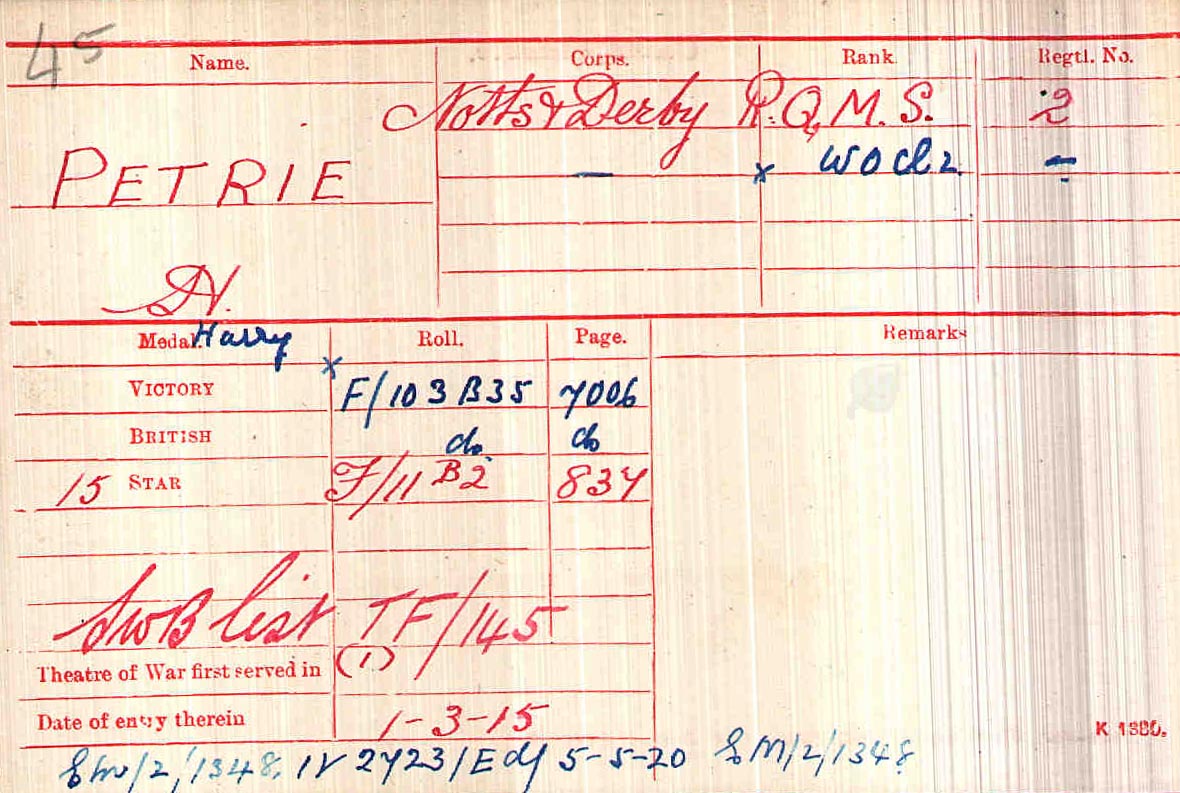 45
Name. Corps. Rank Regtl. No.
Notts & Derby R.Q.M.S. 2
PETRIE — x WO Cl 2 —
H.
Medal. Harry Roll. Page. Remarks
x
VICTORY F/103 B35 7006
BRITISH do. do
15 STAR F/11 B2 837
SWB list TF/145
Theatre of War first served in (1)
Date of entry therein 1-3-15
K 1380.
/2/1348. IV 2723/E 5-5-20 /2/1348